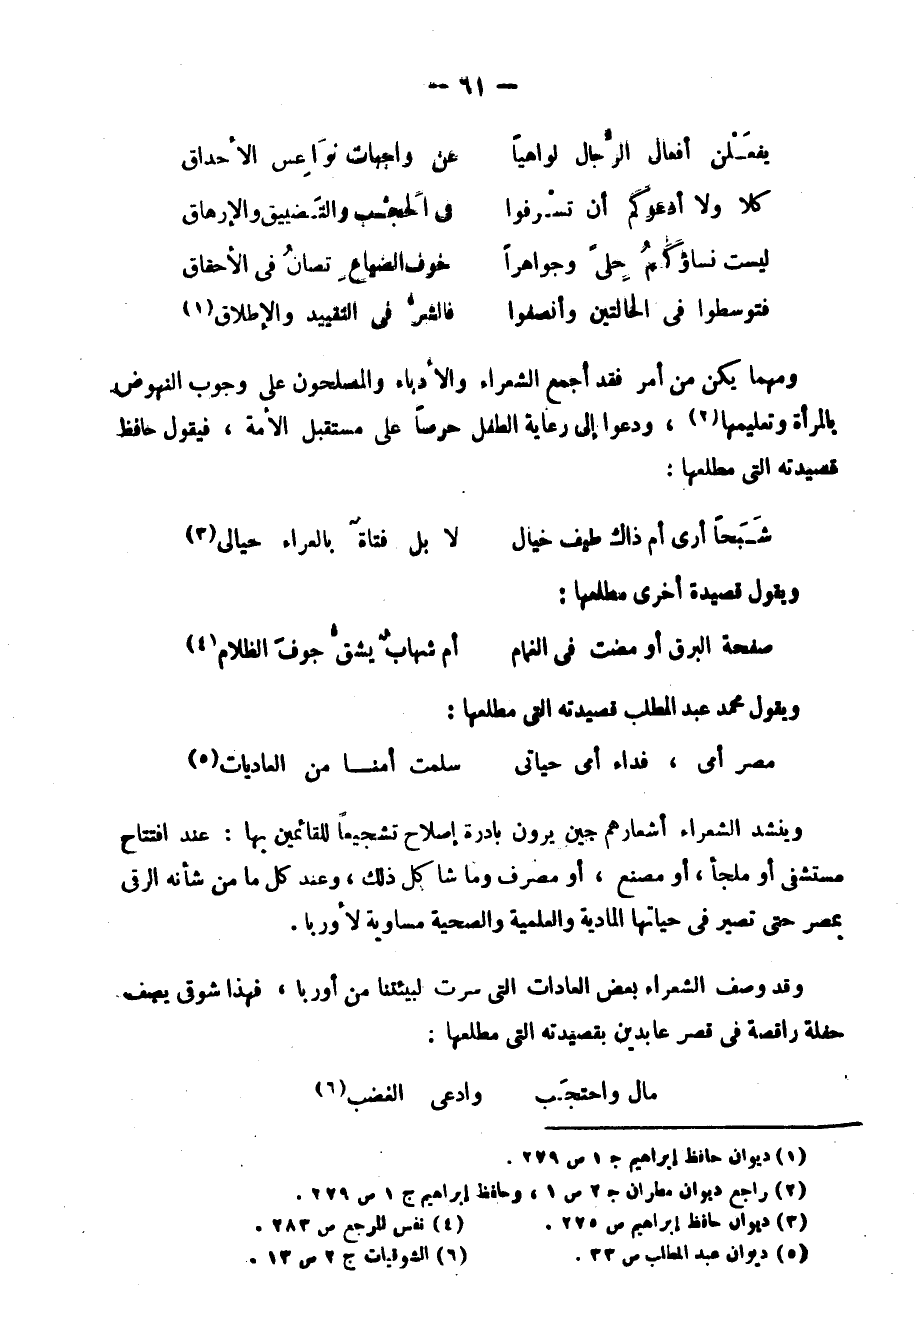 — ٦١ —
يفعَلْن أفعال الرُّجال لواهياً    عن واجبات نَوَاعِس الأحداق
كلا ولا أدعوكُم أن تسْرفوا    فى الحجْب والتَّضييق والإرهاق
ليست نساؤكُمُ حِلىً وجواهراً    خوف الضياعِ تصانُ فى الأحقاق
فتوسطوا فى الحالتين وأنصفوا    فالشرُّ فى التقييد والإطلاق (١)
ومهما يكن من أمر فقد أجمع الشعراء والأدباء والمصلحون على وجوب النهوض
بالمرأة وتعليمها (٢) ، ودعوا إلى رعاية الطفل حرصاً على مستقبل الأمة ، فيقول حافظ
قصيدته التى مطلعها :
شَبَحاً أرى أم ذاك طيف خيال    لا بل فتاةٌ بالعراء حيالى (٣)
ويقول قصيدة أخرى مطلعها :
صفحة البرق أو مضت فى الغمام    أم شهابٌ يشقُّ جوفَ الظلام (٤)
ويقول محمد عبد المطلب قصيدته التى مطلعها :
مصر أمى ، فداء أمى حياتى    سلمت أمنا من العاديات (٥)
وينشد الشعراء أشعارهم حين يرون بادرة إصلاح تشجيعاً للقائمين بها : عند افتتاح
مستشفى أو ملجأ ، أو مصنع ، أو مصرف وما شاكل ذلك ، وعند كل ما من شأنه الرقى
بمصر حتى تصير فى حياتها المادية والعلمية والصحية مساوية لأوربا .
وقد وصف الشعراء بعض العادات التى سرت لبيئتنا من أوربا ، فهذا شوقى يصف
حفلة راقصة فى قصر عابدين بقصيدته التى مطلعها :
مال واحتجَب    وادعى الغضب (٦)
(١) ديوان حافظ إبراهيم ج ١ ص ٢٧٩ .
(٢) راجع ديوان مطران ج ٢ ص ١ ، وحافظ إبراهيم ج ١ ص ٢٧٩ .
(٣) ديوان حافظ إبراهيم ص ٢٧٥ .    (٤) نفس المرجع ص ٢٨٣ .
(٥) ديوان عبد المطلب ص ٣٣ .    (٦) الشوقيات ج ٢ ص ١٣ .